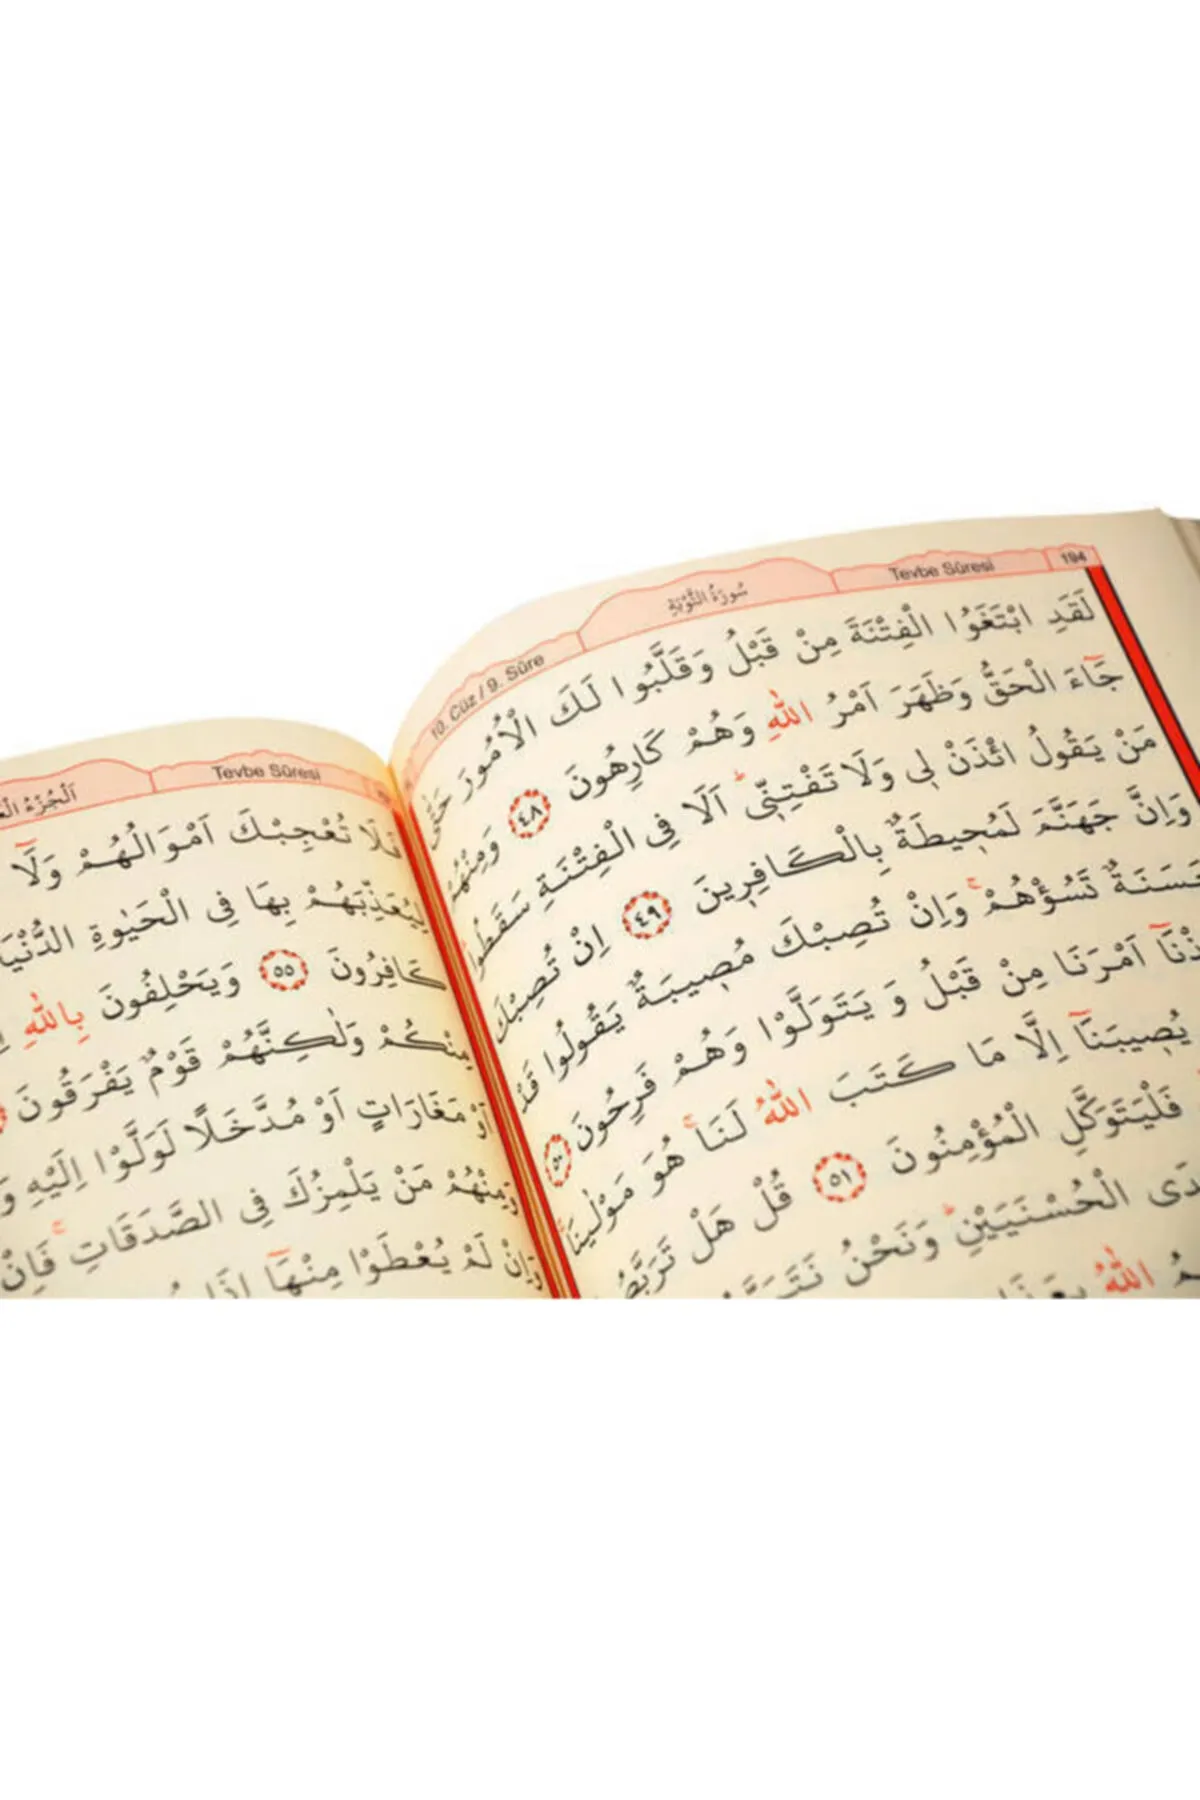 194 Tevbe Sûresi سُورَةُ التَّوْبَةِ 10. Cüz / 9. Sûre
لَقَدِ ابْتَغَوُا الْفِتْنَةَ مِنْ قَبْلُ وَقَلَّبُوا لَكَ الْاُمُورَ حَتّٰى
جَٓاءَ الْحَقُّ وَظَهَرَ اَمْرُ اللّٰهِ وَهُمْ كَارِهُونَ ﴿٤٨﴾ وَمِنْهُمْ
مَنْ يَقُولُ ائْذَنْ ل۪ي وَلَا تَفْتِنّ۪يۜ اَلَا فِي الْفِتْنَةِ سَقَطُواۜ
وَاِنَّ جَهَنَّمَ لَمُح۪يطَةٌ بِالْكَافِر۪ينَ ﴿٤٩﴾ اِنْ تُصِبْكَ
حَسَنَةٌ تَسُؤْهُمْۚ وَاِنْ تُصِبْكَ مُص۪يبَةٌ يَقُولُوا قَدْ
اَمْرَنَا مِنْ قَبْلُ وَيَتَوَلَّوْا وَهُمْ فَرِحُونَ ﴿٥٠﴾
يُص۪يبَنَٓا اِلَّا مَا كَتَبَ اللّٰهُ لَنَاۚ هُوَ مَوْلٰينَاۚ
فَلْيَتَوَكَّلِ الْمُؤْمِنُونَ ﴿٥١﴾ قُلْ هَلْ تَرَبَّصُ
الْحُسْنَيَيْنِۜ وَنَحْنُ نَتَرَبَّ
اللّٰهُ
Tevbe Sûresi اَلْجُزْءُ
فَلَا تُعْجِبْكَ اَمْوَالُهُمْ وَلَٓا
لِيُعَذِّبَهُمْ بِهَا فِي الْحَيٰوةِ الدُّنْيَا
كَافِرُونَ ﴿٥٥﴾ وَيَحْلِفُونَ بِاللّٰهِ
مِنْكُمْ وَلٰكِنَّهُمْ قَوْمٌ يَفْرَقُونَ
اَوْ مَغَارَاتٍ اَوْ مُدَّخَلًا لَوَلَّوْا اِلَيْهِ وَ
وَمِنْهُمْ مَنْ يَلْمِزُكَ فِي الصَّدَقَاتِۚ فَاِنْ
وَاِنْ لَمْ يُعْطَوْا مِنْهَٓا اِذَا